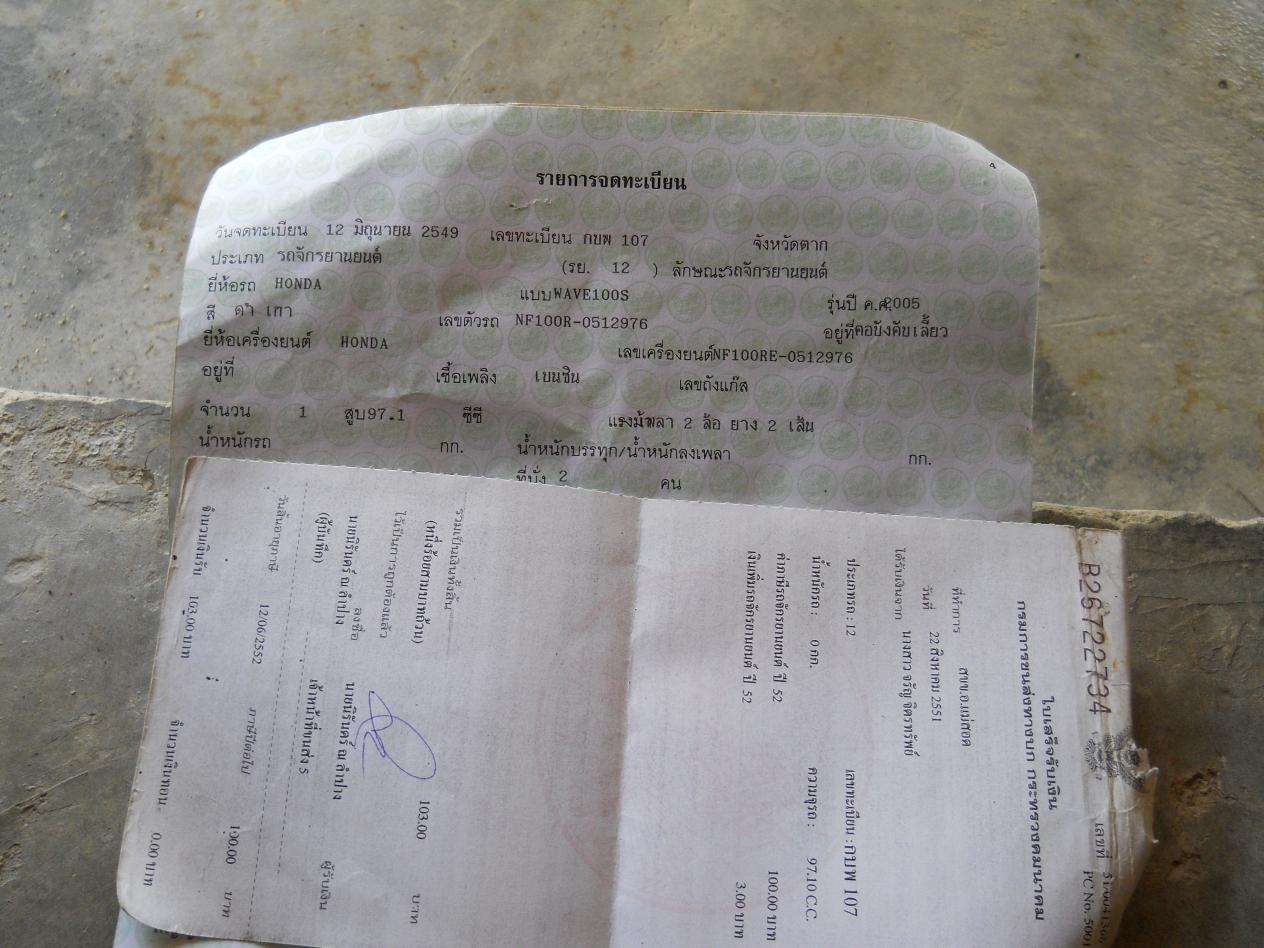 รายการจดทะเบียน
วันจดทะเบียน 12 มิถุนายน 2549 เลขทะเบียน กบพ 107 จังหวัดตาก
ประเภท รถจักรยานยนต์ (รย. 12 ) ลักษณะรถจักรยานยนต์
ยี่ห้อรถ HONDA แบบWAVE100S รุ่นปี ค.ศ.2005
สี ดำ เทา เลขตัวรถ NF100R-0512976 อยู่ที่คอบังคับเลี้ยว
ยี่ห้อเครื่องยนต์ HONDA เลขเครื่องยนต์NF100RE-0512976
อยู่ที่ เชื้อเพลิง เบนซิน เลขถังแก๊ส
จำนวน 1 สูบ97.1 ซีซี แรงม้าเพลา 2 ล้อ ยาง 2 เส้น
น้ำหนักรถ กก. น้ำหนักบรรทุก/น้ำหนักลงเพลา กก.
ที่นั่ง 2 คน
B26722734 เลขที่
PC No. 5001
ใบเสร็จรับเงิน
กรมการขนส่งทางบก กระทรวงคมนาคม
ที่ทำการ สขข.อ.แม่สอด
วันที่ 22 สิงหาคม 2551
ได้รับเงินจาก นางสาว จรัญ จิตรทรัพย์
ประเภทรถ : 12 เลขทะเบียน : กบพ 107
น้ำหนักรถ : 0 กก. ความจุรถ : 97.10 C.C.
ค่าภาษีรถจักรยานยนต์ ปี 52 100.00 บาท
เงินเพิ่มรถจักรยานยนต์ ปี 52 3.00 บาท
รวมเป็นเงินทั้งสิ้น 103.00 บาท
(หนึ่งร้อยสามบาทถ้วน)
ไว้เป็นการถูกต้องแล้ว
ลงชื่อ ผู้รับเงิน
นายนิรันดร์ ณ ลำปาง นายนิรันดร์ ณ ลำปาง
(ผู้บันทึก) เจ้าหน้าที่ขนส่ง 5
วันสิ้นอายุภาษี 12/06/2552 ภาษีปีต่อไป 100.00 บาท
จำนวนเงินรับ 103.00 บาท จำนวนเงินทอน 0.00 บาท